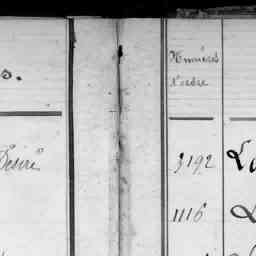 s.
Numéros
d'ordre
Désiré
3192
1116